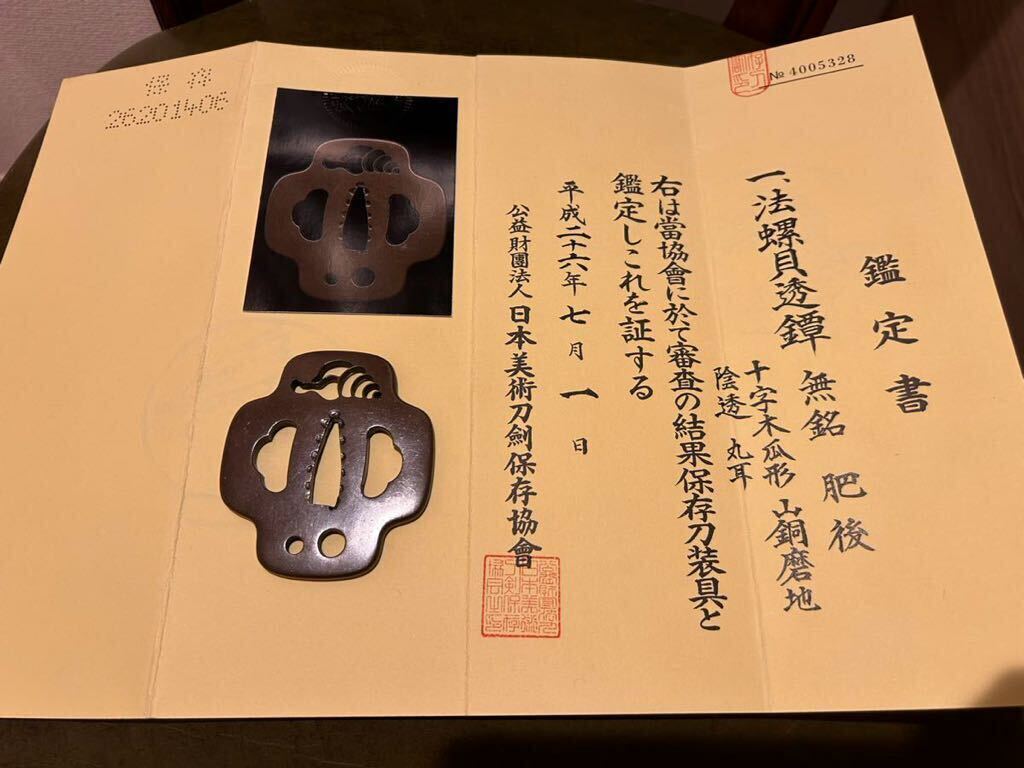 № 4005328
鑑定書
一、法螺貝透鐔 無銘 肥後
十字木瓜形 山銅磨地
陰透 丸耳
右は當協會に於て審査の結果保存刀装具と
鑑定しこれを証する
平成二十六年七月一日
公益財團法人 日本美術刀劍保存協會
保存
26201406